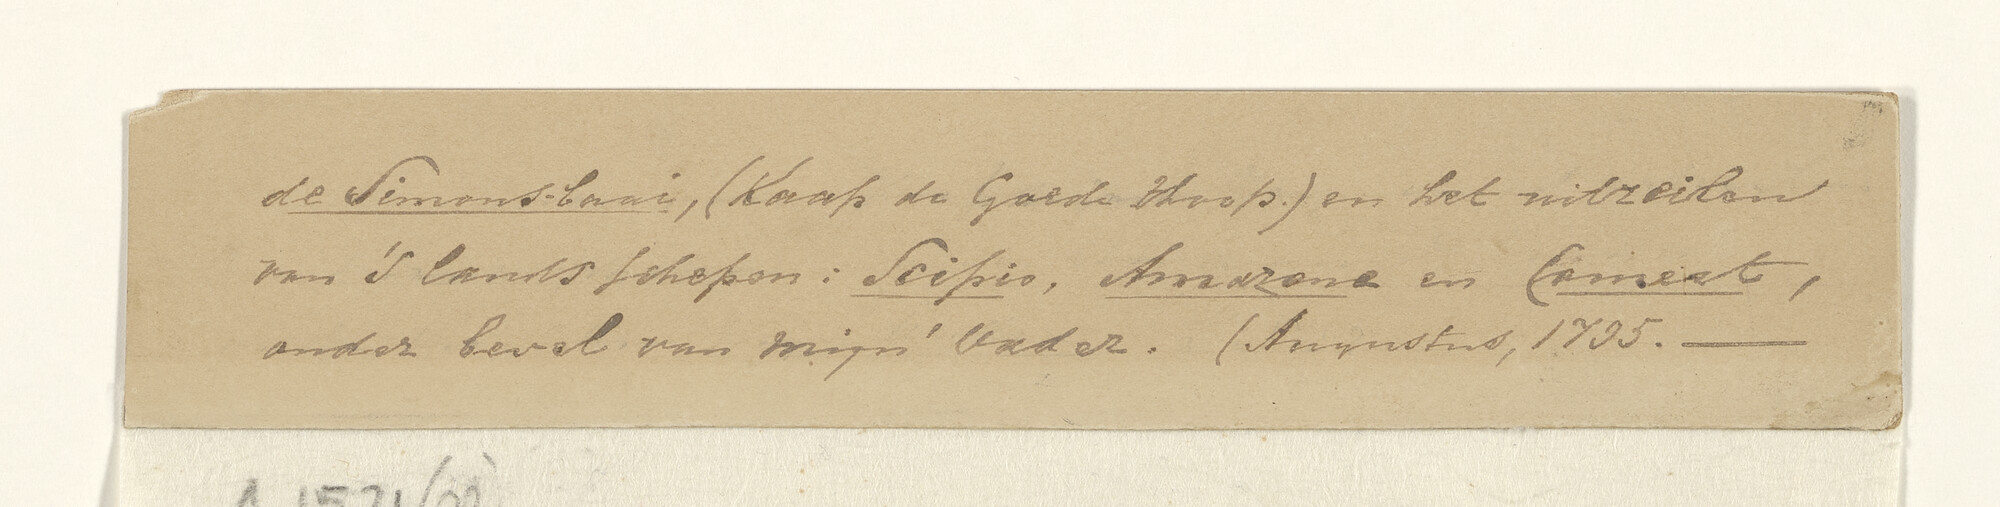 de Simons-baai, (Kaap de Goede Hoop.) en het uitzeilen
van 's lands schepen: Scipio, Amazone en Comeet,
onder bevel van mijn' Vader. (Augustus, 1795. —